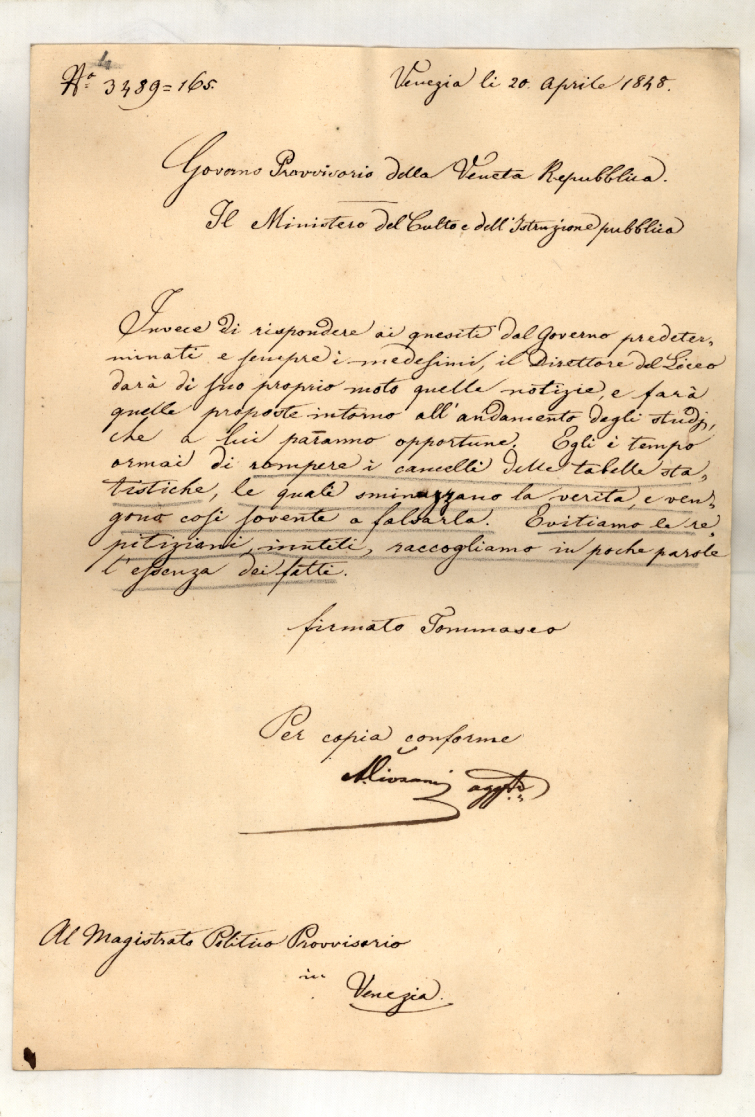 4
N.º 3489=165.
Venezia li 20. Aprile 1848.
Governo Provvisorio della Veneta Repubblica.
Il Ministero del Culto e dell'Istruzione pubblica
Invece di rispondere ai quesiti dal Governo predeter-
minati e sempre i medesimi, il Direttore del Liceo
darà di suo proprio moto quelle notizie, e farà
quelle proposte intorno all'andamento degli studj,
che a lui parranno opportune. Egli è tempo
ormai di rompere i cancelli delle tabelle sta-
tistiche, le quali sminuzzano la verità, e ven-
gono così sovente a falsarla. Evitiamo le re-
petizioni inutili, raccogliamo in poche parole
l'essenza dei fatti.
firmato Tommaseo
Per copia conforme
Al Magistrato Politico Provvisorio
in
Venezia.